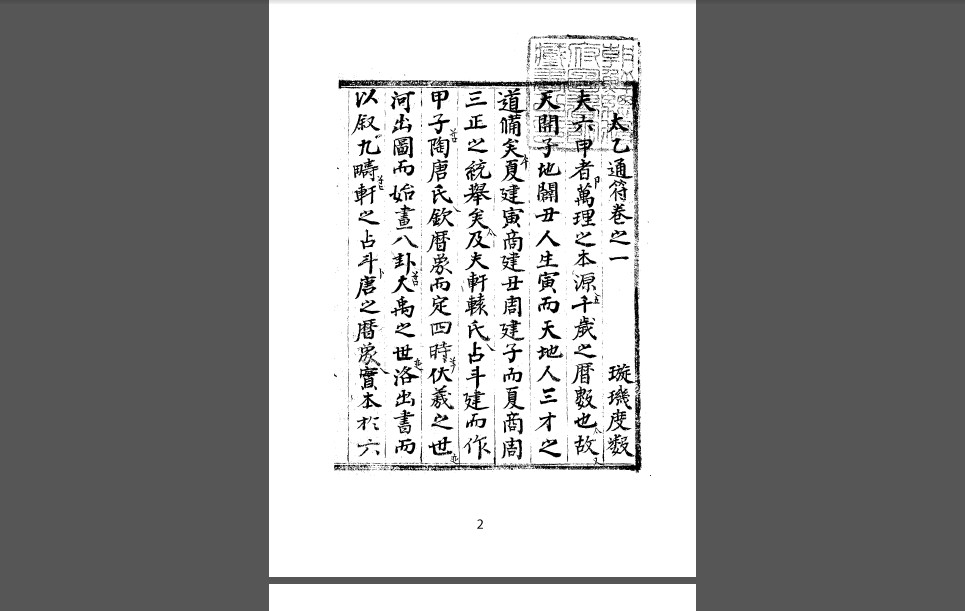 太乙通符卷之一 璇璣度數
夫六甲者萬理之本源千歲之曆數也故
天開子地闢丑人生寅而天地人三才之
道備矣夏建寅商建丑周建子而夏商周
三正之統舉矣及夫軒轅氏占斗建而作
甲子陶唐氏欽曆象而定四時伏羲之世
河出圖而始畫八卦大禹之世洛出書而
以叙九疇軒之占斗唐之曆象實本於六
2